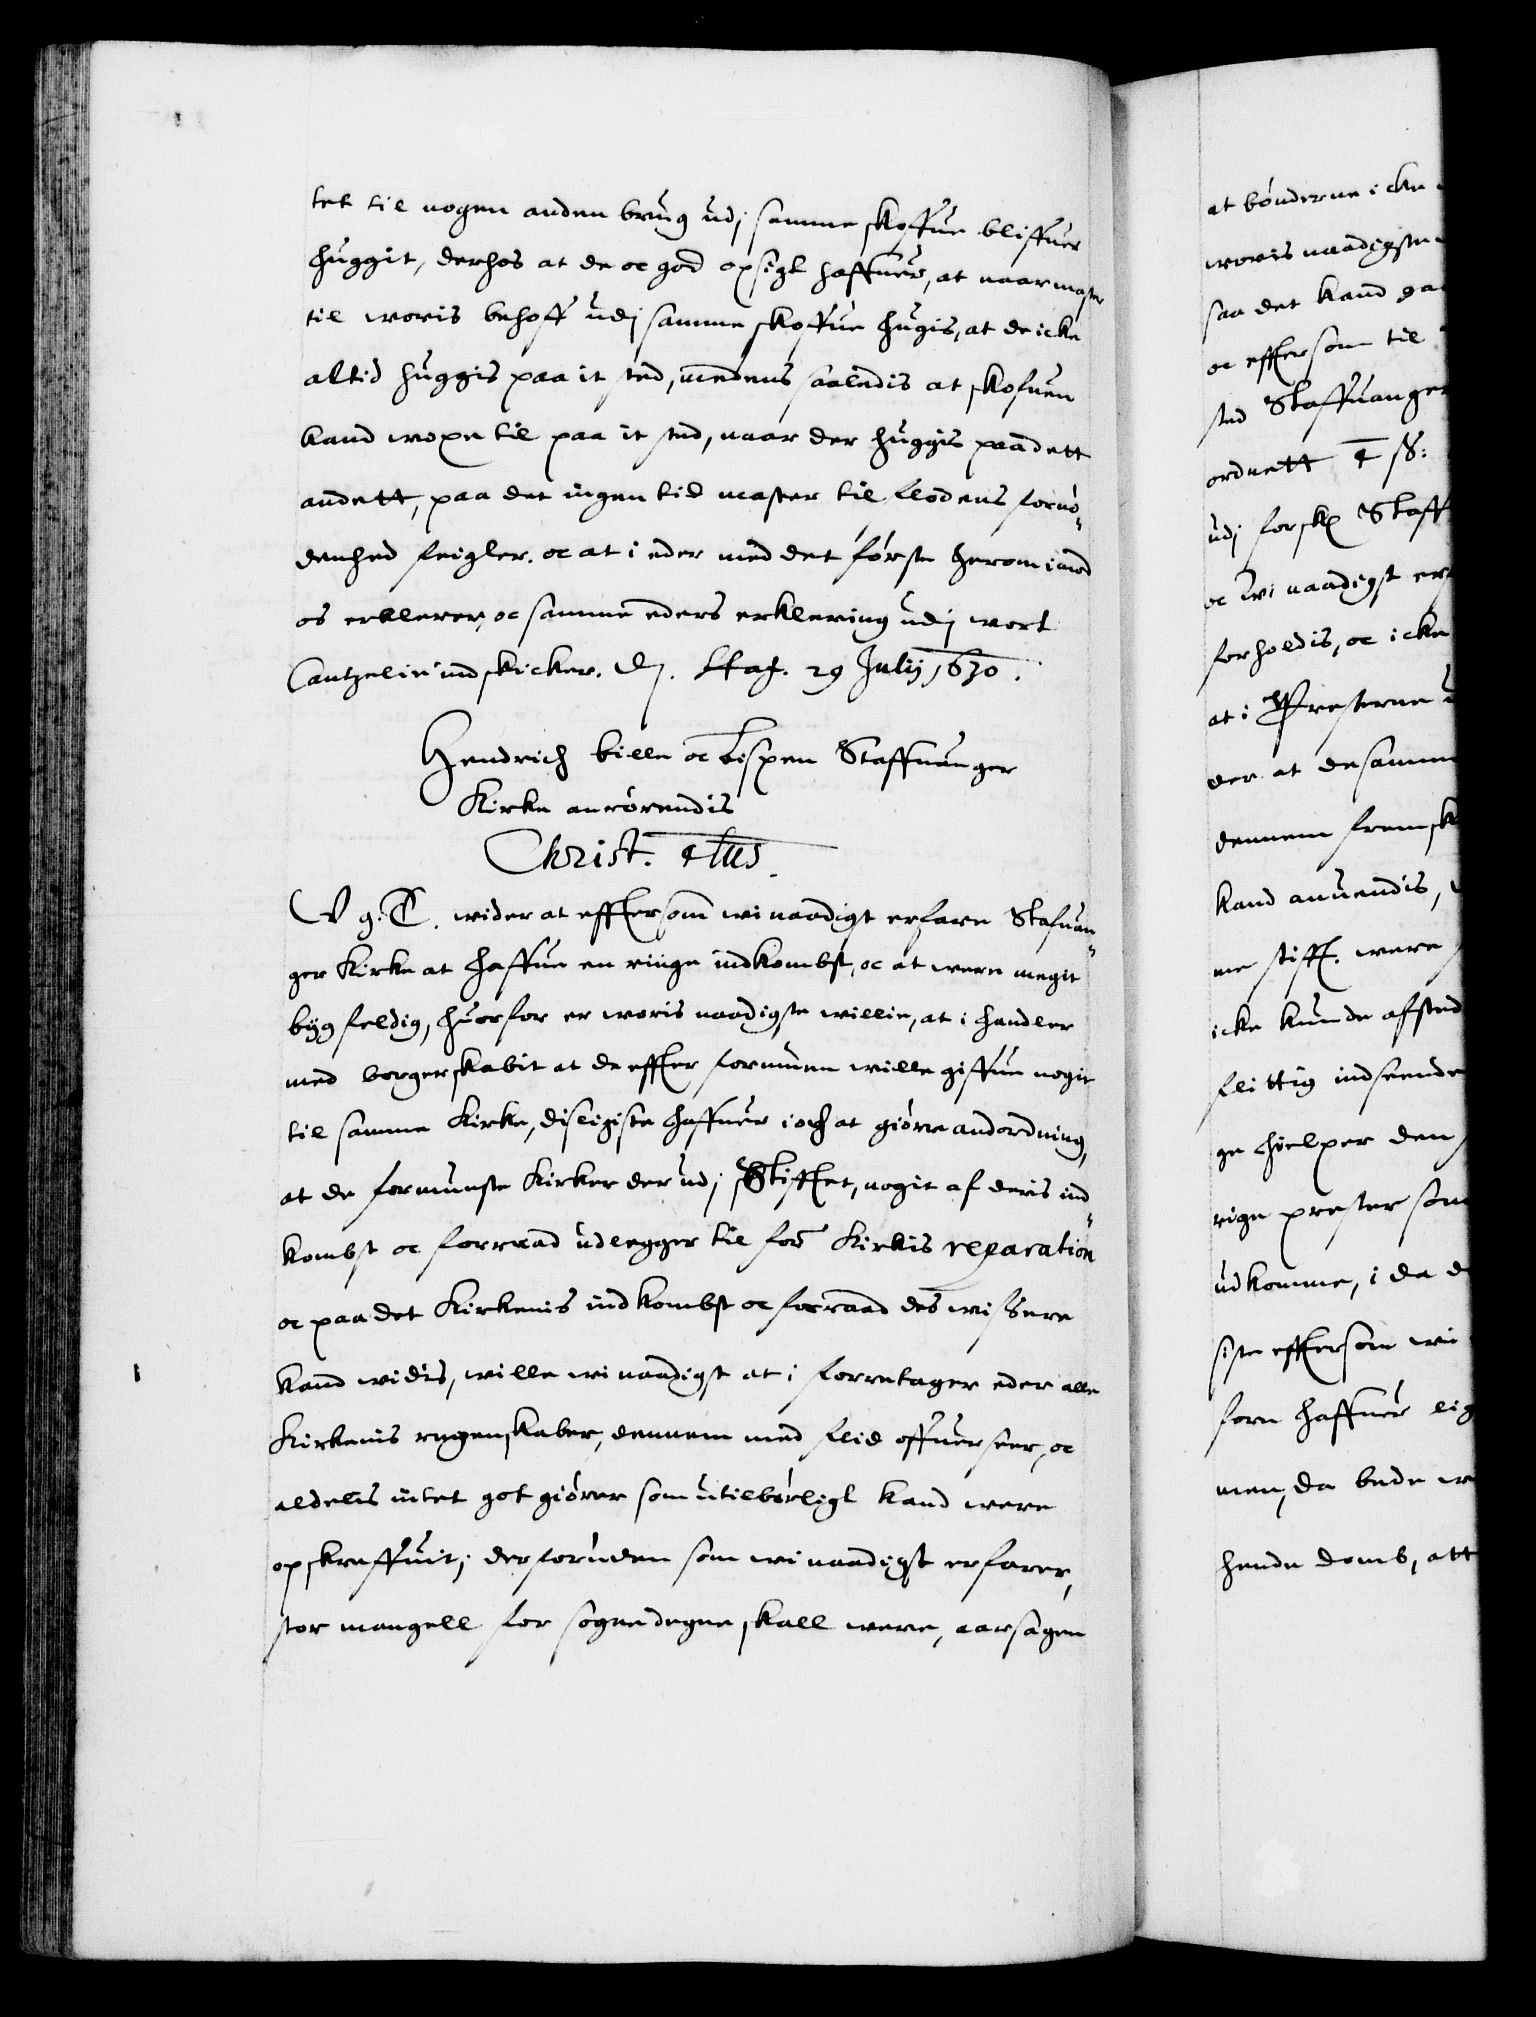 tet til nogen anden brug udj samme skoffue bliffuer
huggit, derhos at de oc god opsigt haffuer, at naar master
til woris behoff udj samme skoffue hugis, at de icke
altid huggis paa it sted, medens saaledis at skofuen
kand woxe til paa it sted, naar der huggis paa dett
andett, paa det ingen tid master til flodens fornø-
denhed feigler. oc at i eder med det første herom imod
os erklerer, oc samme eders erklering udj wort
Cantzelie indskicker. Haf. 29 Julij 1630.
Hendrich bille oc Bispen Staffuanger
Kirke anrørendis
Christ. 4tus.
V g. T. wider at efftersom wi naadigst erfare Stafuan-
ger Kirke at haffue en ringe indkombst, oc at were megit
bygfeldig, huorfor er woris naadigste willie, at i handler
med borgerskabit at de effter formuen wille giffue nogit
til samme Kirke, disligiste haffuer i och at giøre andordning,
at de formunste Kirker der udj Stifftet, nogit af deris ind-
kombst oc forraad udlegger til for Kirkis reparation
oc paa det Kirkenis indkombst oc forraad des wissere
kand widis, wille wi naadigst at i forretager eder alle
Kirkenis regenskaber, dennem med flid offuerseer, oc
aldelis intet got giører som utilbørligt kand were
opskreffuit; derforuden som wi naadigst erfarer,
stor mangell for sognedegne skall were, aarsagen
at bønderne icke
woris naadigste
saa det kand
oc effter som til
sted Staffuanger
ordnett
udj forsk Staff
oc Wi naadigst er
forholdis, oc icke
at i Presterne
der at desamme
dennem fremsk
kand anuendis,
me stifft. were
icke kunde afsted
flittig indseende
ge hielper den
rige prester som
udkomme, i da
siste effter som wi
forn haffuer lig
men, da bede
hende domb, att